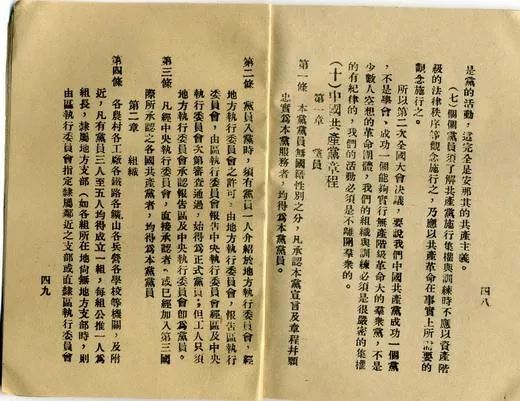 四八
是黨的活動，這完全是安那其的共產主義。
(七) 個個黨員須了解共產黨施行集權與訓練時不應以資產階
級的法律秩序等觀念施行之，乃應以共產革命在事實上所需要的
觀念施行之。
所以第二次全國大會決議，要說我們中國共產黨成功一個黨
，不是學會，成功一個能夠實行無階級革命大的羣衆黨，不是
少數人空想的革命團體，我們的組織與訓練必須是很嚴密的集權
的有紀律的，我們的活動必須是不離開羣衆的。
(十) 中國共產黨章程
第一章 黨員
第一條 本黨黨員無國籍性別之分，凡承認本黨宣言及章程幷願
忠實爲本黨服務者，均得爲本黨黨員。
第二條 黨員入黨時，須有黨員一人介紹於地方執行委員會，經
地方執行委員會之許可，由地方執行委員會，報告區執行
委員會，由區執行委員會報告中央執行委員會經區及中央
執行委員會次第審查通過，始得爲正式黨員；但工人只須
地方執行委員會承認報告區及中央執行委員會卽爲黨員。
第三條 凡經中央執行委員會，直接承認者，或已經加入第三國
際所承認之各國共產黨者，均得爲本黨黨員。
第二章 組織
第四條 各農村各工廠各鐵路各鑛山各兵營各學校等機關，及附
近，凡有黨員三人至五人均得成立一組，每組公推一人爲
組長，隸屬地方支部（如各組所在地尙無地方支部時，則
由區執行委員會指定隸屬鄰近之支部或直隸區執行委員會
四九